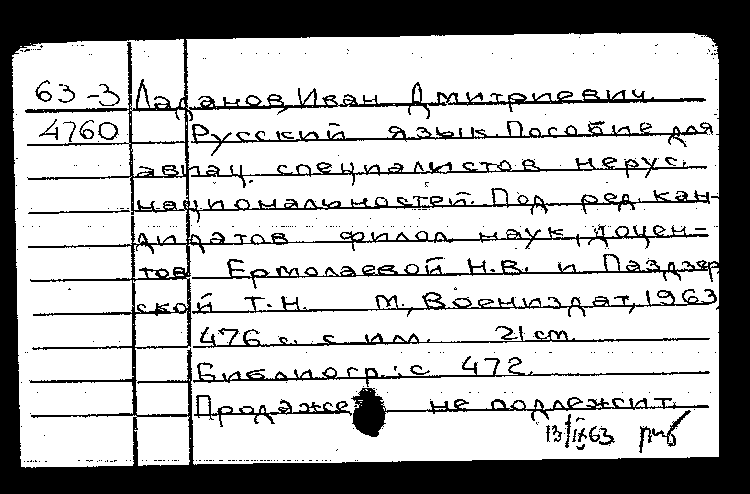 63-3 Ладанов, Иван Дмитриевич.
4760 Русский язык. Пособие для
авиац. специалистов нерус.
национальностей. Под ред. кан-
дидатов филол. наук, доцен-
тов Ермолаевой Н.В. и Паздзер
ской Т.Н. М., Воениздат, 1963
476 с. с илл. 21 cm.
Библиогр.: с 472.
Продаже не подлежит.
13/IX63